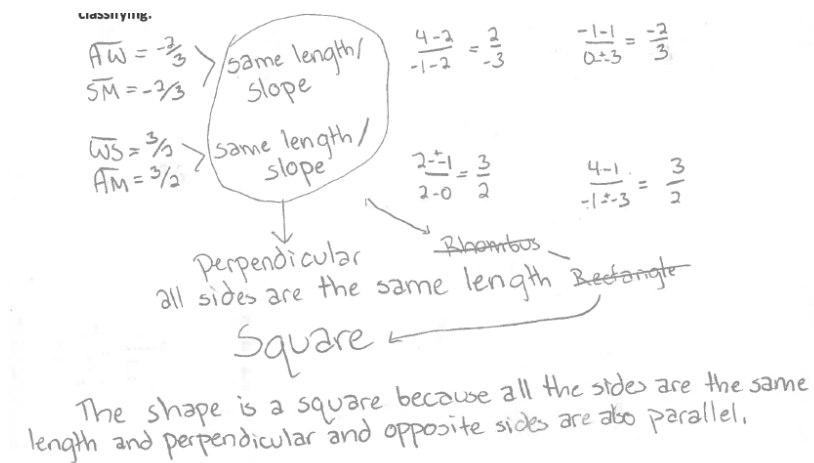 classifying.
A̅W̅ = -2/3 > same length/ slope
S̅M̅ = -2/3
W̅S̅ = 3/2 > same length/ slope
A̅M̅ = 3/2
4-2/-1-2 = 2/-3
-1-1/0+3 = -2/3
2+1/2-0 = 3/2
4-1/-1+3 = 3/2
Perpendicular
Rhombus
all sides are the same length Rectangle
Square
The shape is a square because all the sides are the same
length and perpendicular and opposite sides are also parallel.